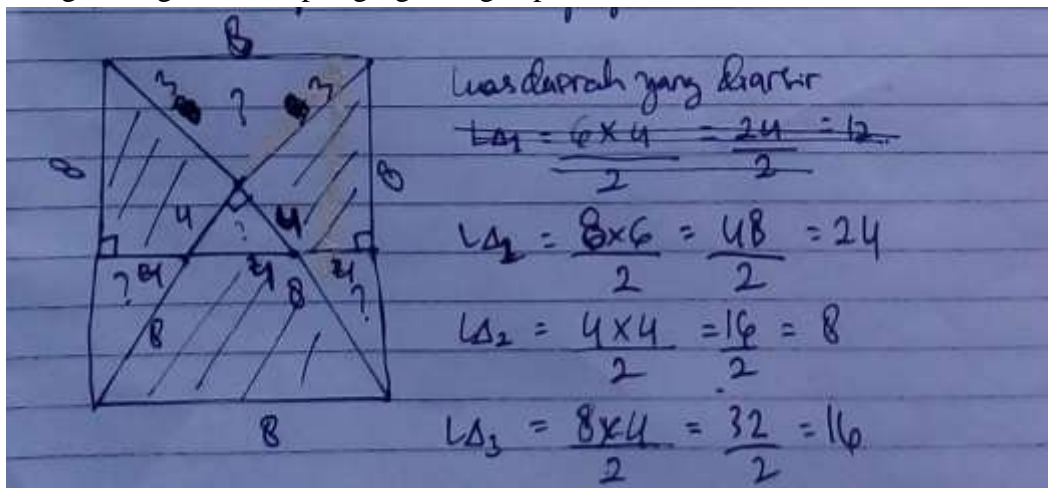 8
3 ? 3
8 8
4 ? 4
? 4 4 4 ?
8 8
8
Luas daerah yang diarsir
L∆1 = 6×4/2 = 24/2 = 12
L∆1 = 8×6/2 = 48/2 = 24
L∆2 = 4×4/2 = 16/2 = 8
L∆3 = 8×4/2 = 32/2 = 16